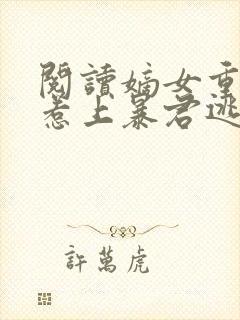 閱讀嫡女重
惹上暴君逃
許萬虎